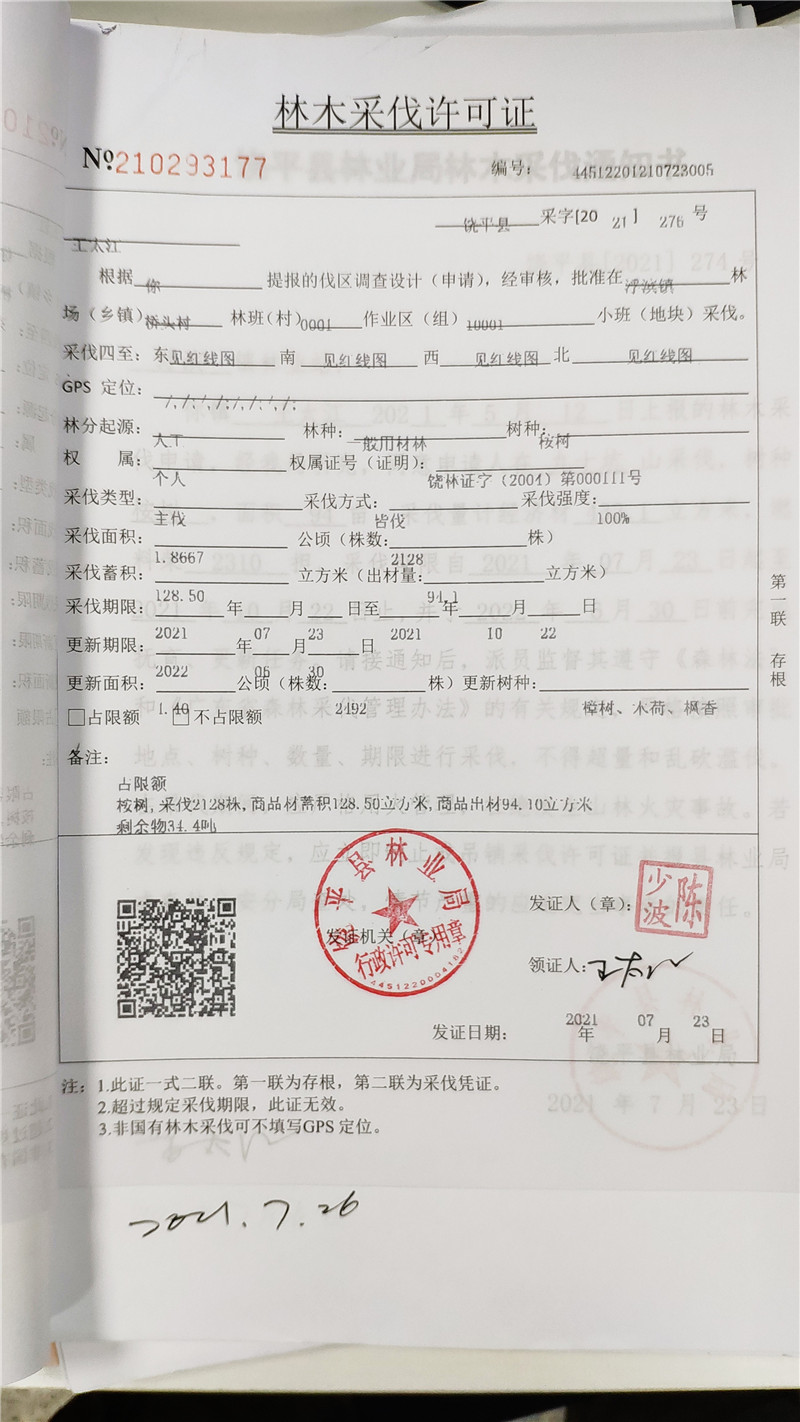 林木采伐许可证
№210293177
编号: 44512201210723005
饶平县 采字[20 21 ] 276 号
王太江
根据 你 提报的伐区调查设计(申请),经审核,批准在 浮滨镇 林
场(乡镇) 桥头村 林班(村) 0001 作业区(组) 10001 小班(地块)采伐。
采伐四至: 东 见红线图 南 见红线图 西 见红线图 北 见红线图
GPS 定位: /,/:′,/:/,/:′,/:
林分起源: 人工 林种: 一般用材林 树种: 桉树
权 属: 个人 权属证号(证明): 饶林证字(2004)第000111号
采伐类型: 主伐 采伐方式: 皆伐 采伐强度: 100%
采伐面积: 1.8667 公顷(株数: 2128 株)
采伐蓄积: 128.50 立方米(出材量: 94.1 立方米)
采伐期限: 2021 年 07 月 23 日至 2021 年 10 月 22 日
更新期限: 2022 年 06 月 30 日
更新面积: 1.40 公顷(株数: 2492 株)更新树种: 樟树、木荷、枫香
□占限额 □不占限额
备注:
占限额
桉树,采伐2128株,商品材蓄积128.50立方米,商品出材94.10立方米
剩余物34.4吨
第一联 存根
饶平县林业局
行政许可专用章
发证机关(章):
发证人(章): 陈少波
领证人: 王太江
发证日期: 2021 年 07 月 23 日
注: 1.此证一式二联。第一联为存根,第二联为采伐凭证。
2.超过规定采伐期限,此证无效。
3.非国有林木采伐可不填写GPS 定位。
2021.7.26